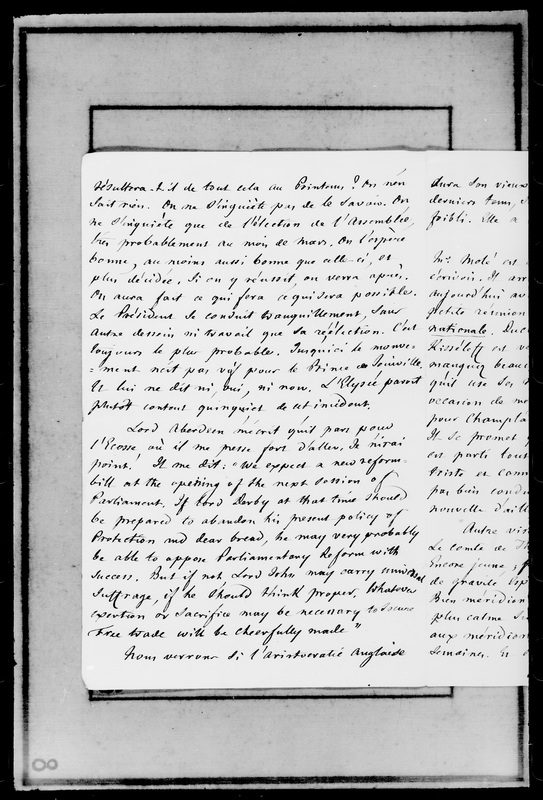 résultera-t-il de tout cela au Printems? On n'en
sait rien. On ne s'inquiète pas de le savoir. On
ne s'inquiète que de l'élection de l'Assemblée,
très probablement au mois de mars. On l'espère
bonne, au moins aussi bonne que celle-ci, et
plus décidée. Si on y réussit, on verra après.
On aura fait ce qui sera possible.
Le Président se conduit tranquillement, sans
autre dessein ni travail que sa réélection. C'est
toujours le plus probable. Jusqu'ici le mouve-
=ment n'est pas vif pour le Prince de Joinville.
Et lui ne dit ni oui, ni non. L'Elysée paroit
plutôt content qu'inquiet de cet incident.
Lord Aberdeen m'écrit qu'il part pour
l'Ecosse, où il me presse fort d'aller. Je n'irai
point. Il me dit: "We expect a new reform
bill at the opening of the next session of
Parliament. If Lord Derby at that time should
be prepared to abandon his present policy of
Protection and dear bread, he may very probably
be able to oppose Parliamentary Reform with
success. But if not, Lord John may carry universal
suffrage, if he should think proper. Whatever
exertion or sacrifice may be necessary to secure
Free trade will be cheerfully made"
Nous verrons si l'aristocratie Anglaise
aura son vieux
derniers tems, 
foibli. Elle a
Mr. Molé est
écrivois. Il arr
aujourd'hui av
petite réunion
nationale. Duc
Kisséleff est ve
manquez beauc
qu'il use ses
occasion de me
pour Champla
Il se promet
est parti tout
triste et comm
pas bien condu
nouvelle d'aill
Autre visi
Le comte de
Encore jeune,
de gravité esp
Bien méridion
plus calme
aux méridion
semaines. Et